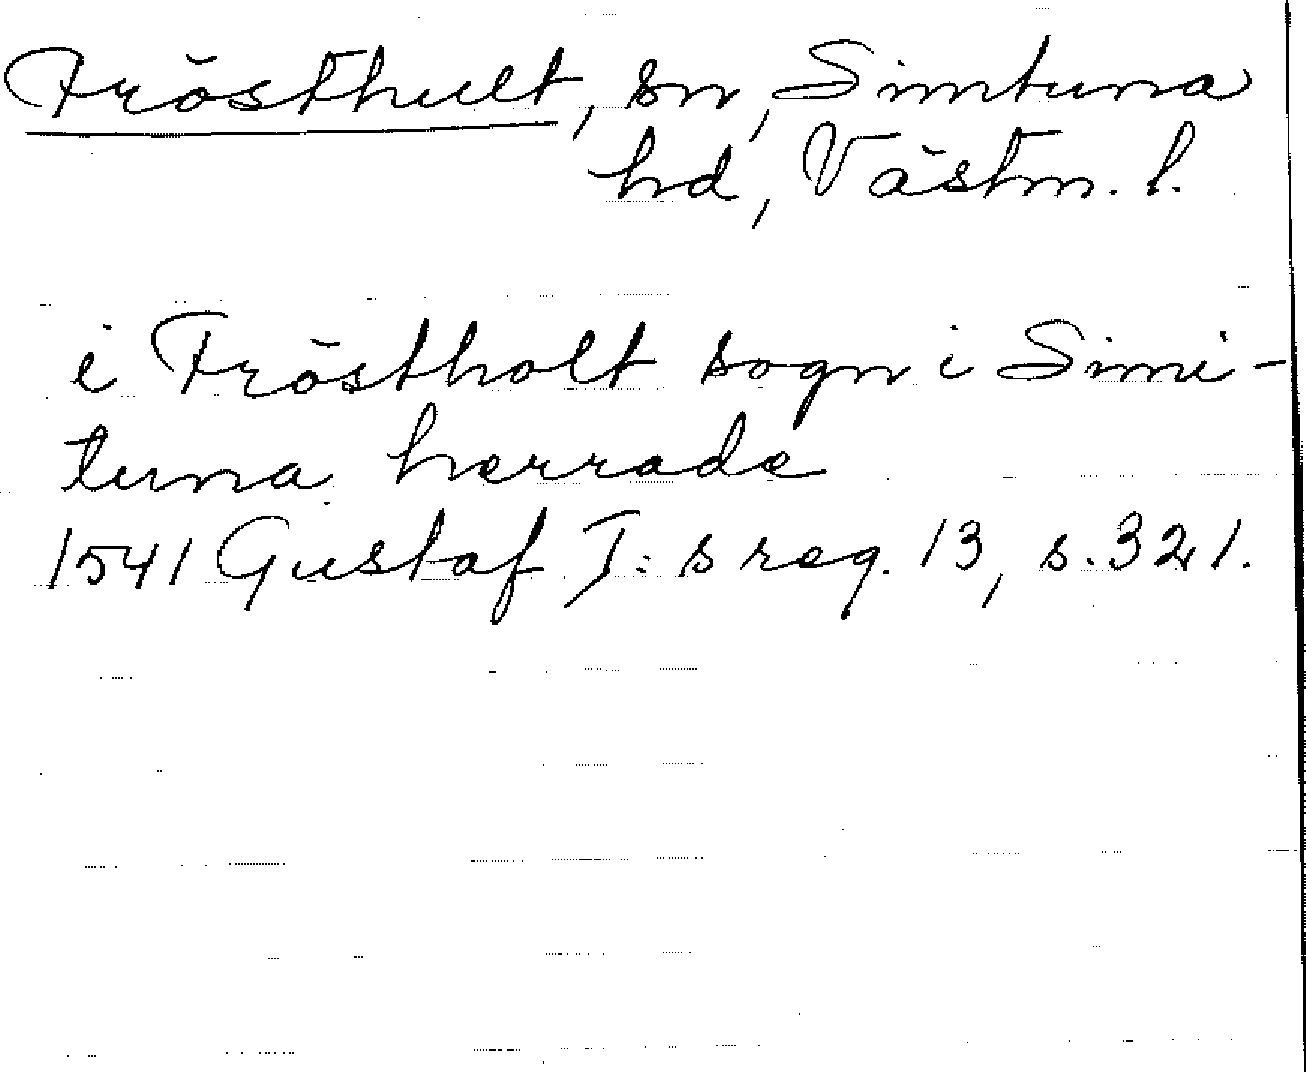 Frösthult, sn, Simtuna
hd, Västm. l.
i Fröstholt sogn i Simi-
tuna herrade
1541 Gustaf I:s reg. 13, s. 321.